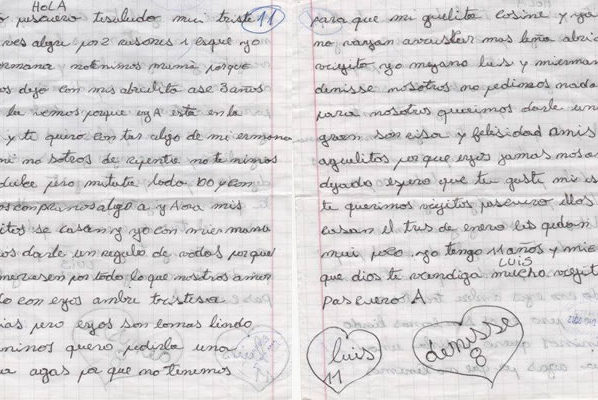 HOLA
pascuero te saludo mui triste 11
ves alegre por 2 rasones 1 esque yo
ermana no tenimos mamá porque
os dejo con mis abuelito ase 3 años
la vemos porque eyA está en la
y te quero contar algo de mi ermana
mi nosotros de repente no tenimos
dulce pero mi tata todo, 100 y con
os conpranos algo a y Aora mis
itos se casam y yo con mi ermama
os darle un regalo de vodas porque
meresen por todo lo que nosotros amor
lo con eyos ambre tristesa
ias pero eyos son lo mas lindo
enimos quero pedirle una
a agas pa que no tenemos
para que mi guelita cosine y ya
no vayan a vuscar mas leña abri
viejito yo me yamo luis y mi erman
denisse nosotros no pedimos nada
para nosotros querimos darle un
gran sonrisa y felisidad a mis
aguelitos porque eyos jamas nos an
dejado espero que te guste mi
te querimos viejitos pascuero ellos
casan el tres de enero les quedan
mui poco yo tengo 11 años y mi
LUIS
que dios te vendiga mucho viejit
Pascuero A
luis
11
denisse
8